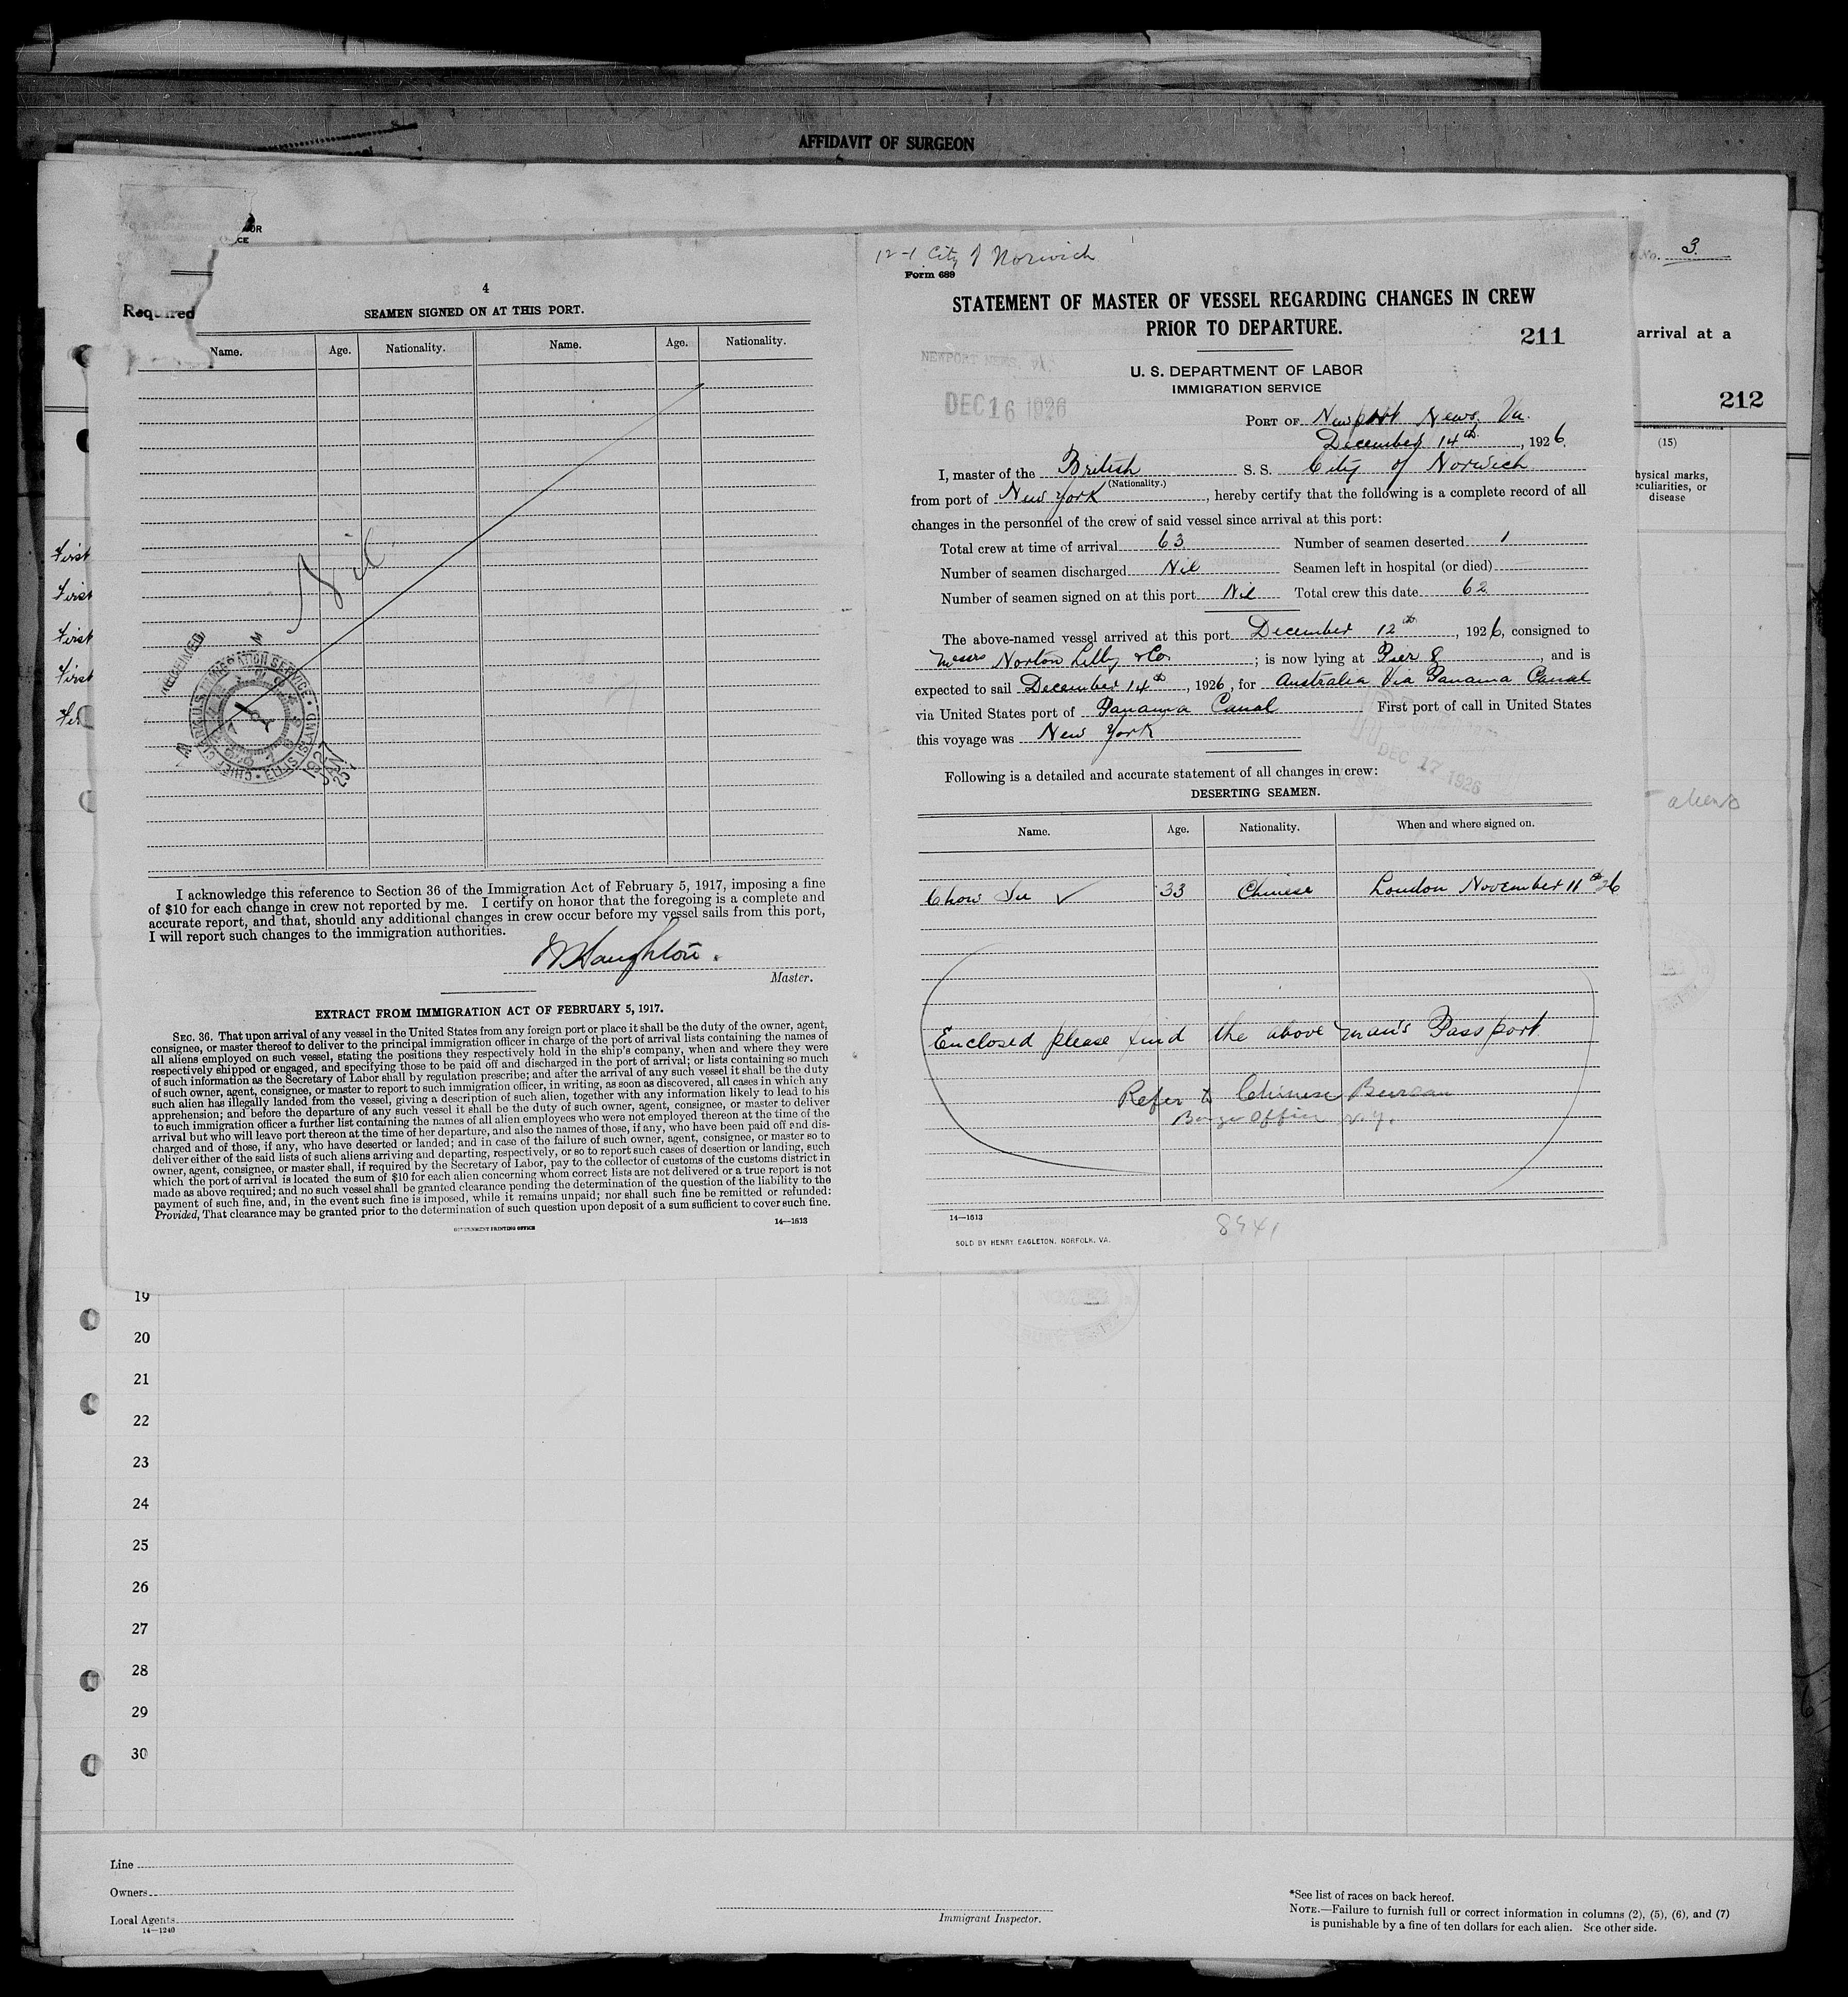 AFFIDAVIT OF SURGEON
OR
CE
Required
4
SEAMEN SIGNED ON AT THIS PORT.
Name. Age. Nationality. Name. Age. Nationality.
Nil
RECEIVED
U.S. IMMIGRATION SERVICE
CHIEF CLERK
ELLIS ISLAND
1927 JAN 25
I acknowledge this reference to Section 36 of the Immigration Act of February 5, 1917, imposing a fine
of $10 for each change in crew not reported by me. I certify on honor that the foregoing is a complete and
accurate report, and that, should any additional changes in crew occur before my vessel sails from this port,
I will report such changes to the immigration authorities.
Haughton.
Master.
EXTRACT FROM IMMIGRATION ACT OF FEBRUARY 5, 1917.
SEC. 36. That upon arrival of any vessel in the United States from any foreign port or place it shall be the duty of the owner, agent,
consignee, or master thereof to deliver to the principal immigration officer in charge of the port of arrival lists containing the names of
all aliens employed on such vessel, stating the positions they respectively hold in the ship's company, when and where they were
respectively shipped or engaged, and specifying those to be paid off and discharged in the port of arrival; or lists containing so much
of such information as the Secretary of Labor shall by regulation prescribe; and after the arrival of any such vessel it shall be the duty
of such owner, agent, consignee, or master to report to such immigration officer, in writing, as soon as discovered, all cases in which any
such alien has illegally landed from the vessel, giving a description of such alien, together with any information likely to lead to his
apprehension; and before the departure of any such vessel it shall be the duty of such owner, agent, consignee, or master to deliver
to such immigration officer a further list containing the names of all alien employees who were not employed thereon at the time of the
arrival but who will leave port thereon at the time of her departure, and also the names of those, if any, who have been paid off and dis-
charged and of those, if any, who have deserted or landed; and in case of the failure of such owner, agent, consignee, or master so to
deliver either of the said lists of such aliens arriving and departing, respectively, or so to report such cases of desertion or landing, such
owner, agent, consignee, or master shall, if required by the Secretary of Labor, pay to the collector of customs of the customs district in
which the port of arrival is located the sum of $10 for each alien concerning whom correct lists are not delivered or a true report is not
made as above required; and no such vessel shall be granted clearance pending the determination of the question of the liability to the
payment of such fine, and, in the event such fine is imposed, while it remains unpaid; nor shall such fine be remitted or refunded:
Provided, That clearance may be granted prior to the determination of such question upon deposit of a sum sufficient to cover such fine.
GOVERNMENT PRINTING OFFICE 14—1613
12-1 City of Norwich
Form 689
STATEMENT OF MASTER OF VESSEL REGARDING CHANGES IN CREW
PRIOR TO DEPARTURE.
211
NEWPORT NEWS, VA.
U. S. DEPARTMENT OF LABOR
IMMIGRATION SERVICE
DEC 16 1926
PORT OF Newport News, Va.
December 14th, 1926.
I, master of the British S. S. City of Norwich
(Nationality.)
from port of New York, hereby certify that the following is a complete record of all
changes in the personnel of the crew of said vessel since arrival at this port:
Total crew at time of arrival 63 Number of seamen deserted 1
Number of seamen discharged Nil Seamen left in hospital (or died) —
Number of seamen signed on at this port Nil Total crew this date 62
The above-named vessel arrived at this port December 12th, 1926, consigned to
Messrs Norton Lilly & Co; is now lying at Pier 8, and is
expected to sail December 14th, 1926, for Australia Via Panama Canal
via United States port of Panama Canal First port of call in United States
this voyage was New York
DEC 17 1926
Following is a detailed and accurate statement of all changes in crew:
DESERTING SEAMEN.
Name. Age. Nationality. When and where signed on.
Chow Su ✓ 33 Chinese London November 11th 26
Enclosed please find the above man's Passport
Refer to Chinese Bureau
Barge Office N.Y.
14—1613
SOLD BY HENRY EAGLETON, NORFOLK, VA.
No. 3.
arrival at a
212
GOVERNMENT PRINTING OFFICE
(15)
hysical marks,
eculiarities, or
disease
aliens
First
First
First
First
19
20
21
22
23
24
25
26
27
28
29
30
Line
Owners
Local Agents
14—1240
Immigrant Inspector.
*See list of races on back hereof.
NOTE.—Failure to furnish full or correct information in columns (2), (5), (6), and (7)
is punishable by a fine of ten dollars for each alien. See other side.